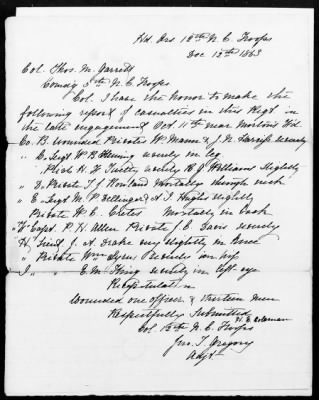 Hd. Qrs 12th N. C. Troops
Dec 12th 1863
Col. Thos. M. Garrett
Comdg 5th N. C. Troops
Col. I have the honor to make the
following report of casualties in this Regt in
the late engagement near Morton's Fd.
Co. B. wounded Privates W. Mann & J. N. severely
" C. Sergt W. B. Fleming severely in leg
severely Williams Slightly
" D. Private T. J. Rowland Mortally through neck
" E. Sergt M. P. Dellinger & T. Hughs slightly
Private W. E. Mortally in back
Capt. P. H. Allen Private J. E. Davis severely
H. Lieut J. A. Drake very slightly in knee
" Private Wm severely in hip
I " E. M. King severely in left eye
Recapitulation
Wounded one officer & thirteen men
Respectfully Submitted
H. E. Coleman
Col 12th N. C. Troops
Jno. T. Gregory
Adjt